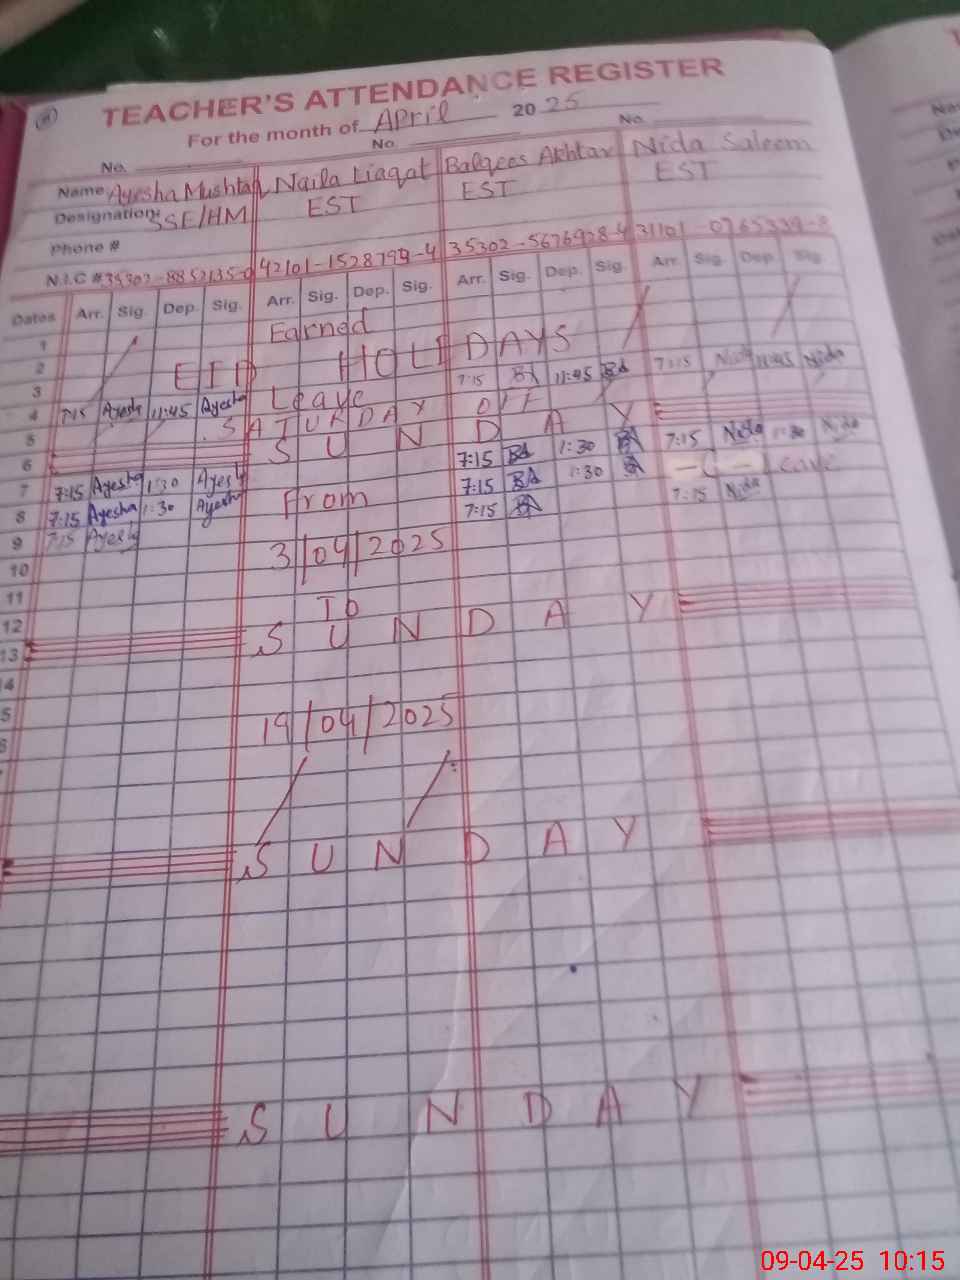 TEACHER'S ATTENDANCE REGISTER
For the month of April 2025
No. No. No.
Name Ayesha Mushtaq Naila Liaqat Balqees Akhtar Nida Saleem
Designation: SSE/HM EST EST EST
Phone #
N.I.C # 35302-8852135-0 42101-1528799-4 35302-5676928-4 31101-0765339-8
Dates Arr. Sig. Dep. Sig. Arr. Sig. Dep. Sig. Arr. Sig. Dep. Sig. Arr. Sig. Dep. Sig.
1 Earned
2 EID HOLIDAYS
3 Leave 7:15 BA 11:45 BA 7:15 Nida 11:45 Nida
4 7:15 Ayesha 11:45 Ayesha
5 SATURDAY OFF
6 SUNDAY
7 7:15 Ayesha 1:30 Ayesha 7:15 BA 1:30 BA 7:15 Nida 1:30 Nida
8 7:15 Ayesha 1:30 Ayesha From 7:15 BA 1:30 BA Leave
9 7:15 Ayesha 7:15 BA 7:15 Nida
10 3/04/2025
11
12 To
13 SUNDAY
4
5
19/04/2025
SUNDAY
SUNDAY
09-04-25 10:15